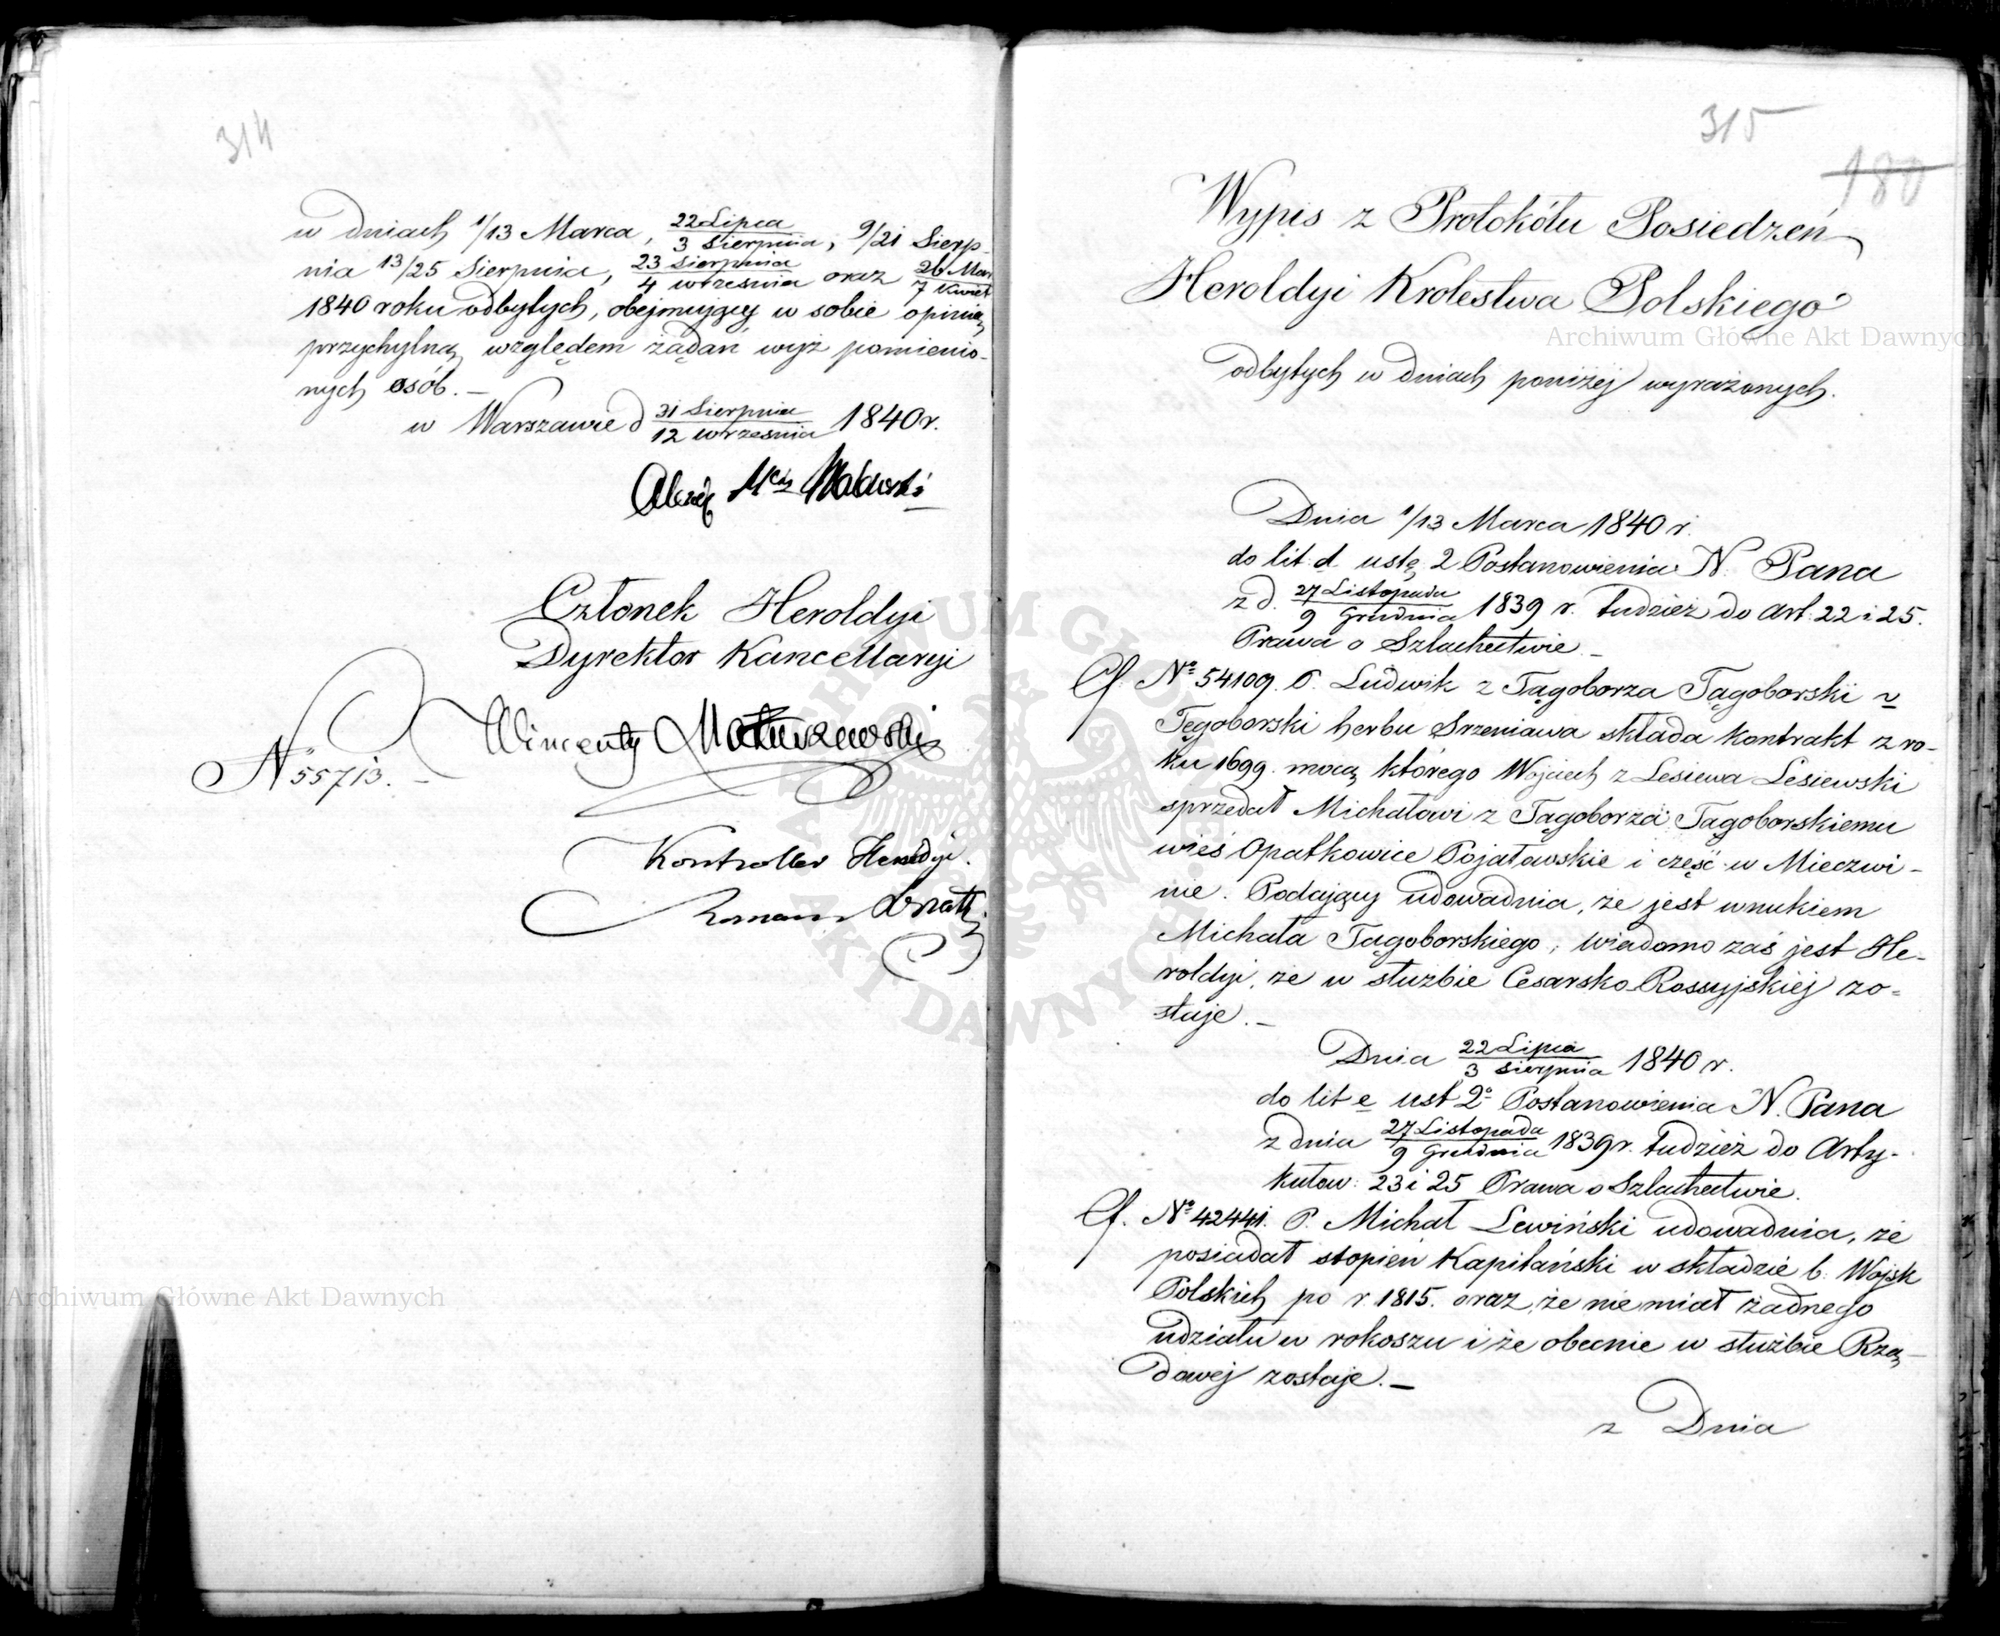 314
w dniach 1/13 Marca, 22 Lipca / 3 Sierpnia, 9/21 Sierp-
nia 13/25 Sierpnia, 23 Sierpnia / 4 września oraz 26 Mar / 7 Kwiet
1840 roku odbytych, obejmujący w sobie opinią
przychylną względem żądań wyż pomienio-
nych osób. —
w Warszawie d 31 Sierpnia / 12 września 1840 r.
Członek Heroldyi
Dyrektor Kancellaryi
Wincenty Matuszewski
No 55713. —
Kontroller Heroldyi.
Roman
315
180
Wypis z Protokółu Posiedzeń
Heroldyi Krolestwa Polskiego
odbytych w dniach poniżej wyrażonych.
Dnia 1/13 Marca 1840 r.
do lit. d. ustę. 2 Postanowienia N. Pana
z d. 27 Listopada / 9 Grudnia 1839 r. tudzież do Art. 22 i 25.
Prawa o Szlachectwie —
Cf. No 54109. P. Ludwik z Tągoborza Tągoborski v
Tęgoborski herbu Srzeniawa składa kontrakt z ro-
ku 1699. mocą którego Wojciech z Lesiewa Lesiewski
sprzedał Michałowi z Tągoborza Tągoborskiemu
wieś Opatkowice Pojałowskie i część w Mieczwi-
nie. Podający udowadnia, że jest wnukiem
Michała Tągoborskiego; wiadomo zaś jest He-
roldyi, że w służbie Cesarsko Rossyjskiéj zo-
staje. —
Dnia 22 Lipca / 3 Sierpnia 1840 r.
do lit e ust 2o Postanowienia N. Pana
z dnia 27 Listopada / 9 Grudnia 1839 r. tudzież do Arty-
kułow: 23 i 25 Prawa o Szlachectwie.
Cf. No 42441. P. Michał Lewiński udowadnia, że
posiadał stopień Kapitański w składzie b. Wojsk
Polskich po r. 1815. oraz, że nie miał żadnego
udziału w rokoszu i że obecnie w służbie Rzą-
dowej zostaje. —
z Dnia
Archiwum Główne Akt Dawnych
Archiwum Główne Akt Dawnych
ARCHIWUM GŁÓWNE AKT DAWNYCH